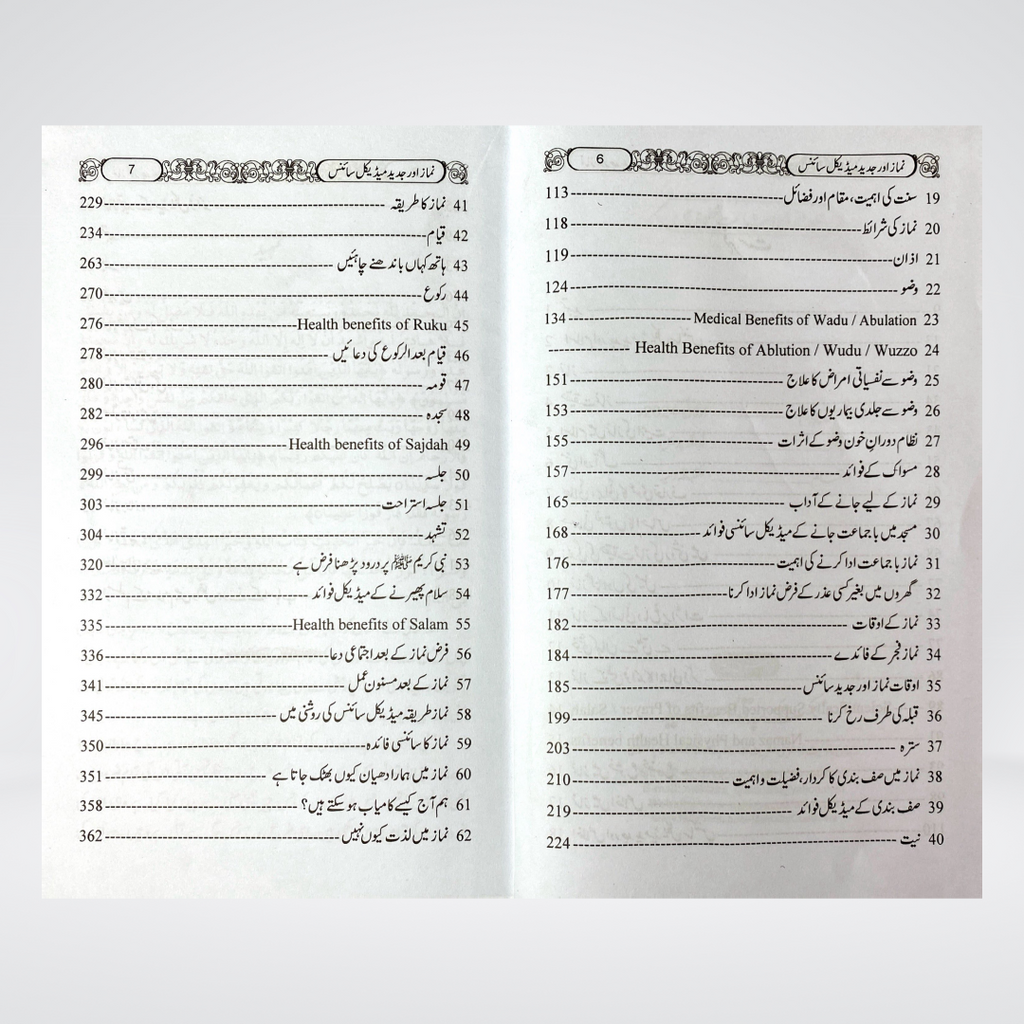 6 نماز اور جدید میڈیکل سائنس
19 سنت کی اہمیت، مقام اور فضائل 113
20 نماز کی شرائط 118
21 اذان 119
22 وضو 124
23 Medical Benefits of Wadu / Abulation 134
24 Health Benefits of Ablution / Wudu / Wuzzo
25 وضو سے نفسیاتی امراض کا علاج 151
26 وضو سے جلدی بیماریوں کا علاج 153
27 نظام دورانِ خون وضو کے اثرات 155
28 مسواک کے فوائد 157
29 نماز کے لیے جانے کے آداب 165
30 مسجد میں باجماعت جانے کے میڈیکل سائنسی فوائد 168
31 نماز باجماعت ادا کرنے کی اہمیت 176
32 گھروں میں بغیر کسی عذر کے فرض نماز ادا کرنا 177
33 نماز کے اوقات 182
34 نماز فجر کے فائدے 184
35 اوقات نماز اور جدید سائنس 185
36 قبلہ کی طرف رخ کرنا 199
37 سترہ 203
38 نماز میں صف بندی کا کردار، فضیلت و اہمیت 210
39 صف بندی کے میڈیکل فوائد 219
40 نیت 224
7 نماز اور جدید میڈیکل سائنس
41 نماز کا طریقہ 229
42 قیام 234
43 ہاتھ کہاں باندھنے چاہئیں 263
44 رکوع 270
45 Health benefits of Ruku 276
46 قیام بعد الرکوع کی دعائیں 278
47 قومہ 280
48 سجدہ 282
49 Health benefits of Sajdah 296
50 جلسہ 299
51 جلسہ استراحت 303
52 تشہد 304
53 نبی کریم ﷺ پر درود پڑھنا فرض ہے 320
54 سلام پھیرنے کے میڈیکل فوائد 332
55 Health benefits of Salam 335
56 فرض نماز کے بعد اجتماعی دعا 336
57 نماز کے بعد مسنون عمل 341
58 نماز طریقہ میڈیکل سائنس کی روشنی میں 345
59 نماز کا سائنسی فائدہ 350
60 نماز میں ہمارا دھیان کیوں بھٹک جاتا ہے 351
61 ہم آج کیسے کامیاب ہو سکتے ہیں؟ 358
62 نماز میں لذت کیوں نہیں 362